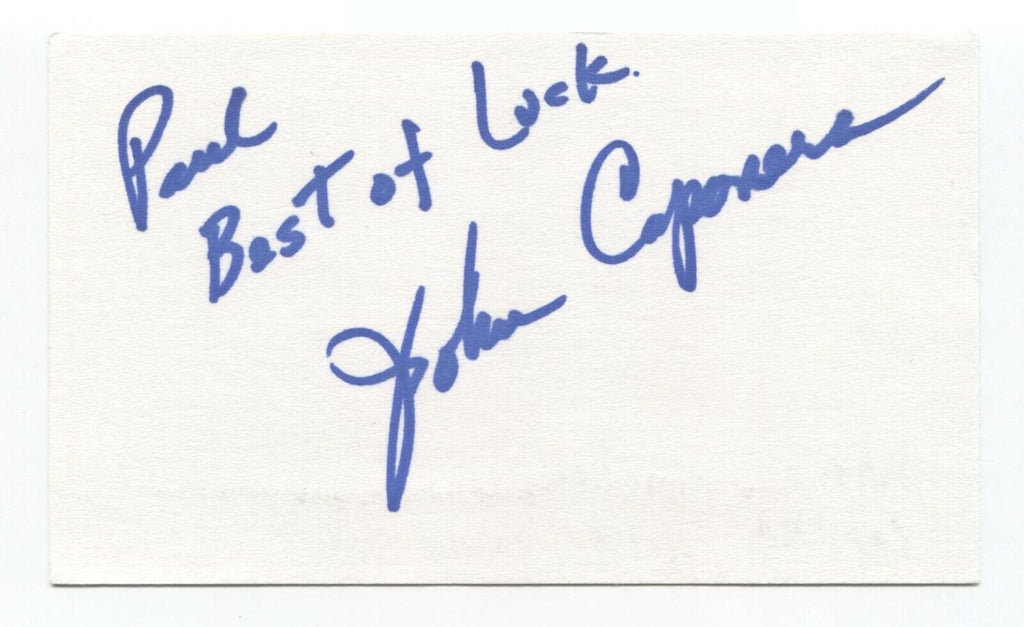 Paul
Best of Luck.
John Caponera